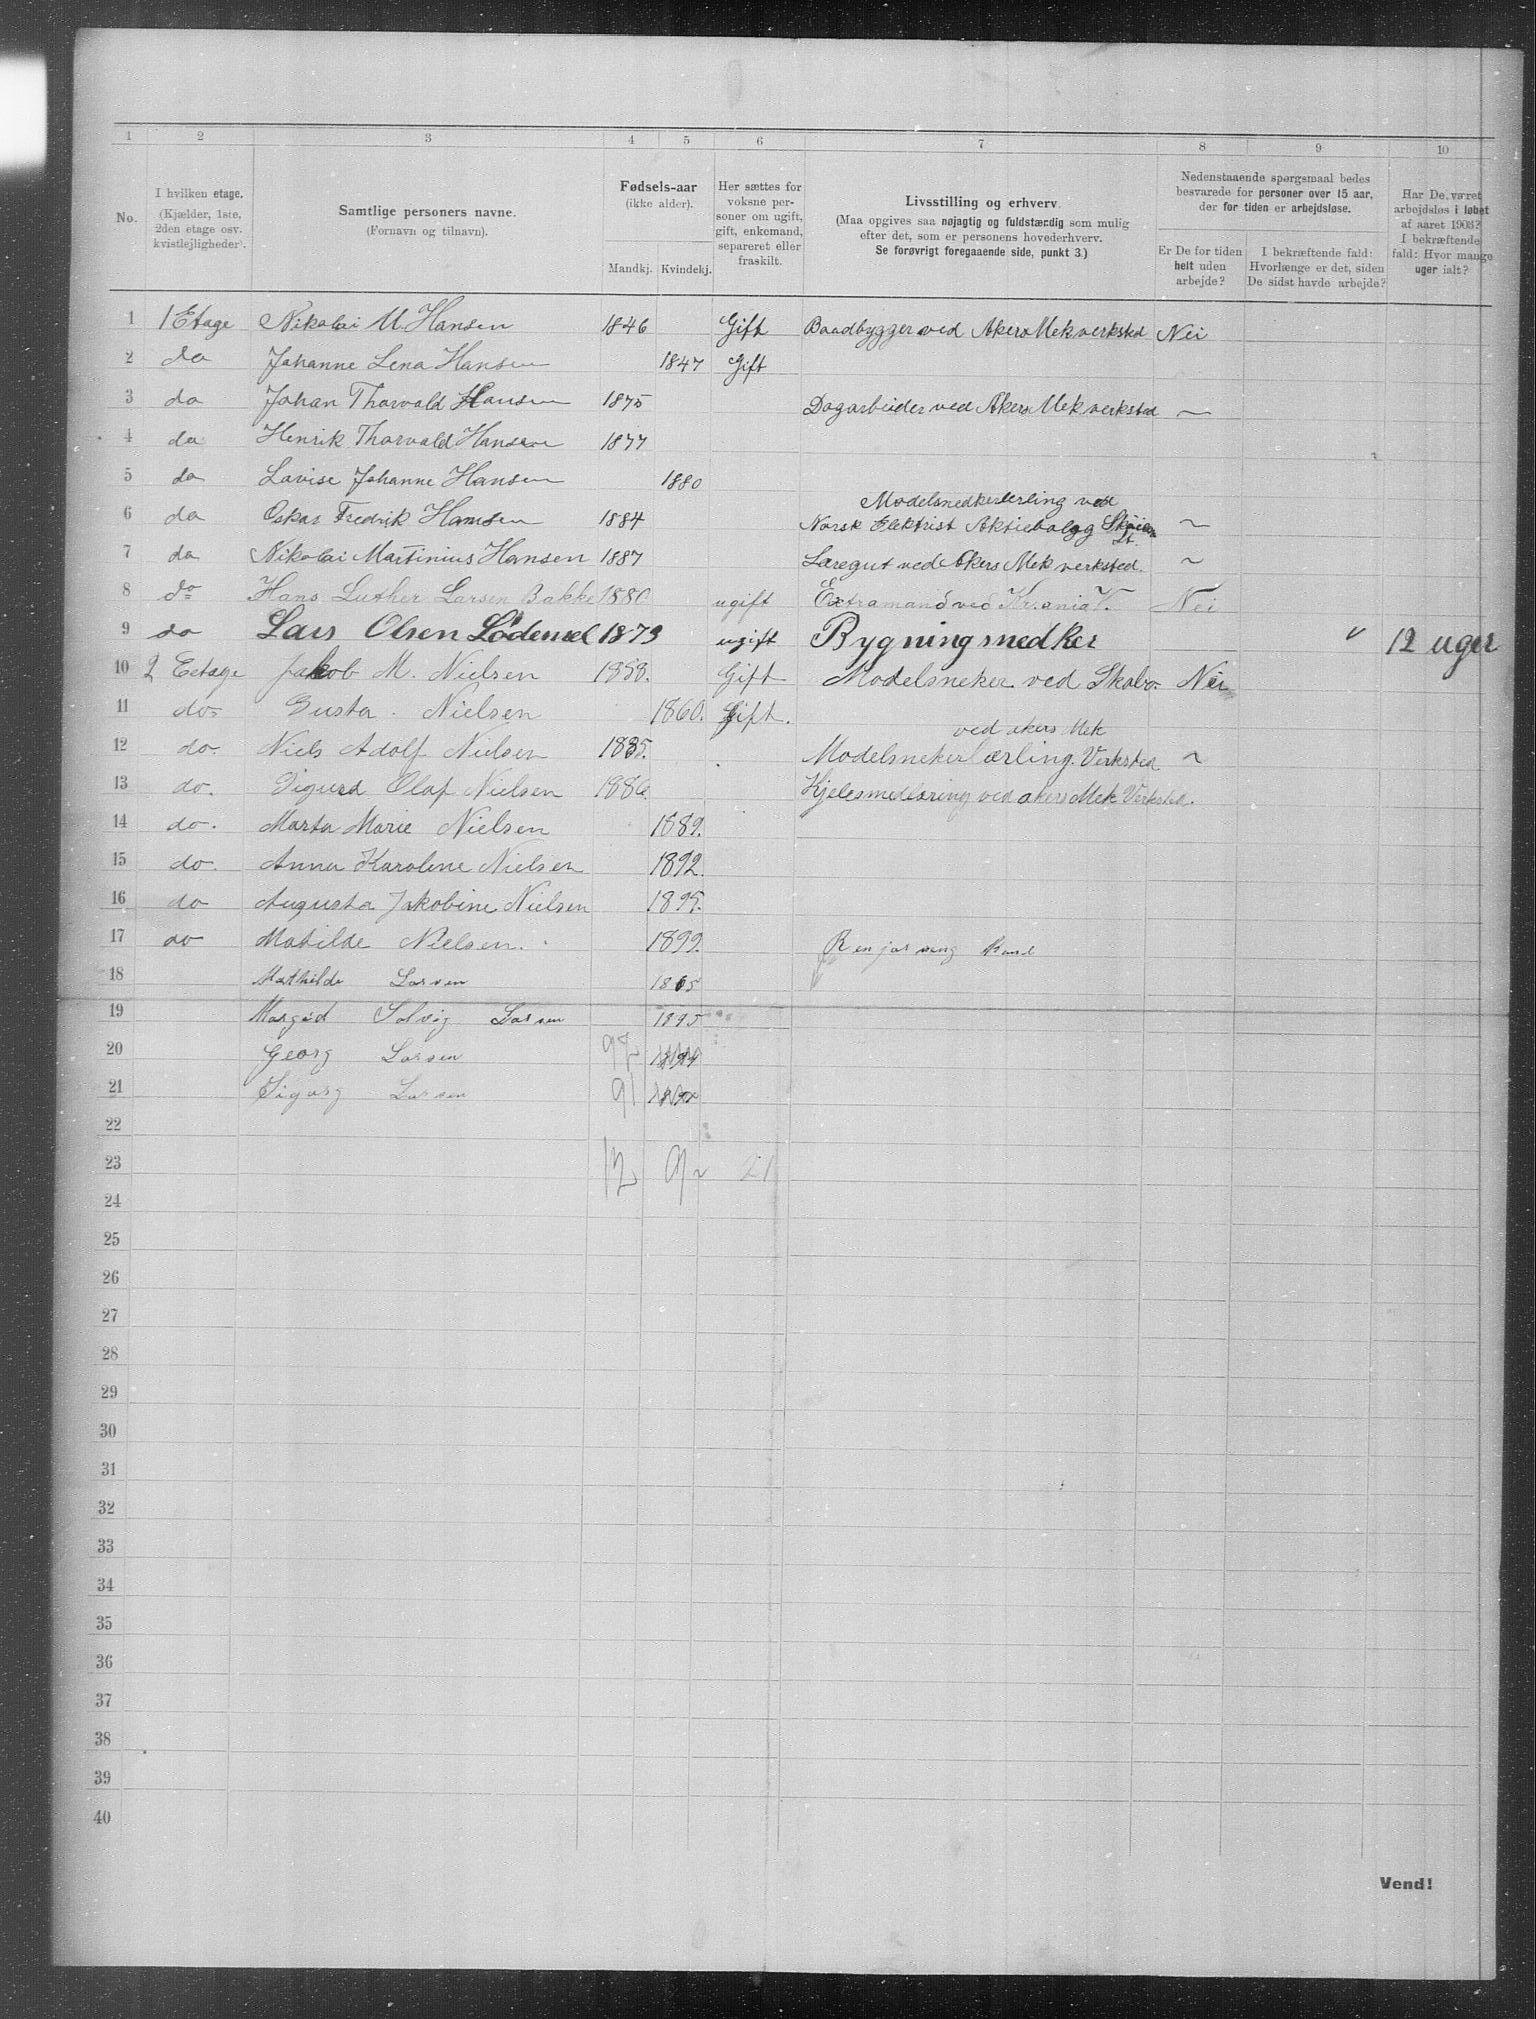 1 2 3 4 5 6 7 8 9 10
No.
I hvilken etage.
(Kjælder, 1ste, 2den etage osv. kvistlejligheder).
Samtlige personers navne.
(Fornavn og tilnavn).
Fødsels-aar
(ikke alder).
Mandkj. Kvindekj.
Her sættes for voksne personer om ugift, gift, enkemand, separeret eller fraskilt.
Livsstilling og erhverv.
(Maa opgives saa nøjagtig og fuldstændig som mulig
efter det, som er personens hovederhverv.
Se forøvrigt foregaaende side, punkt 3.)
Nedenstaaende spørgsmaal bedes
besvarede for personer over 15 aar,
der for tiden er arbejdsløse.
Er De for tiden helt uden arbejde?
I bekræftende fald: Hvorlænge er det, siden De sidst havde arbejde?
Har De været arbejdsløs i løbet af aaret 1903? I bekræftende fald: Hvor mange uger ialt?
1 1 Etage Nikolai M. Hansen 1846 Gift Baadbygger ved Akers Mek verksted Nei
2 do Johanne Lena Hansen 1847 Gift
3 do Johan Thorvald Hansen 1875 Dagarbeider ved Akers Mek verksted ~
4 do Henrik Thorvald Hansen 1877
5 do Lovise Johanne Hansen 1880
Modelsnedkerlerling ved
6 do Oskar Fredrik Hansen 1884 Norsk Elektrist Aktiebolag Skøien ~
7 do Nikolai Martinius Hansen 1887 Læregut ved Akers Mek verksted. ~
8 do Hans Luther Larsen Bakke 1880 ugift Extramand ved Kr.ania V. Nei
9 do Lars Olsen Lødemel 1873 ugift Bygningsnedker " 12 uger
10 2 Eetage Jakob M. Nielsen 1858. Gift Modelsneker ved Skabo. Nei
11 do. Gusta Nielsen 1860. Gift.
ved akers Mek
12 do. Niels Adolf Nielsen 1885. Modelsnekerlærling. Verksted ~
13 do. Sigurd Olaf Nielsen 1886. Kjelesmedlæring ved akers Mek Verksted.
14 do. Marta Marie Nielsen 1889.
15 do. Anna Karoline Nielsen 1892.
16 do Augusta Jakobine Nielsen 1895.
17 do Matilde Nielsen. 1899. Renjøring Kone
18 Mathilde Larsen 1865
19 Margid Solvig Larsen 1895
20 Georg Larsen 1894
21 Sigurg Larsen 91
22
23 12 9 21
24
25
26
27
28
29
30
31
32
33
34
35
36
37
38
39
40
Vend!